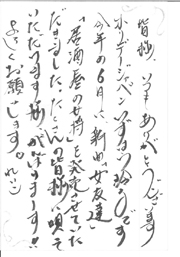 皆様、いつもありがとうございます
ホリデージャパン いずみ ゆきです
今年の6月に新曲「女友達」
「居酒屋の女将」を発売させていた
だきました。たくさんの皆様に唄って
いただけます様、がんばりまーす!!
よろしくお願いします。